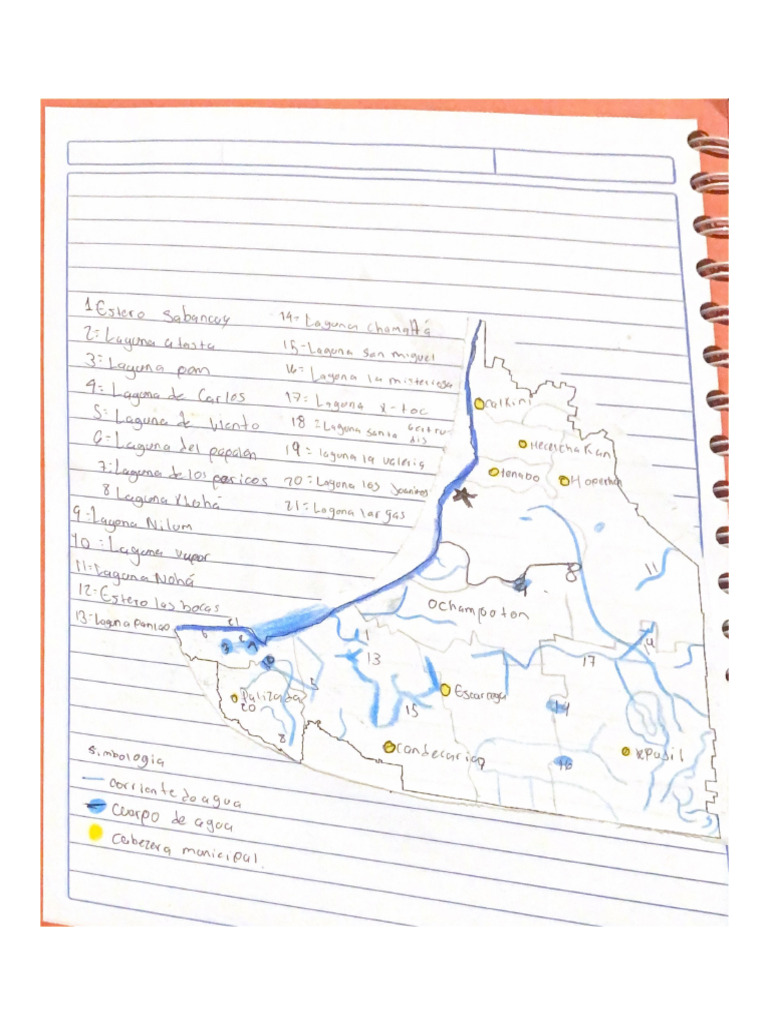 1 Estero Sabancuy
2= Laguna atasta
3= Laguna pom
4= Laguna de Carlos
5= Laguna de Viento
6= Laguna del papalen
7= Laguna de los pericos
8 Laguna Xlohá
9= Laguna Nilum
10= Laguna vapor
11= Laguna Nohá
12= Estero las bocas
13= Laguna panlao
14= Laguna chamaltá
15- Laguna san miguel
16= Laguna la misteriosa
17= Laguna x-toc
18= Laguna santa Gertru
dis
19= laguna la valeria
20= Laguna los joaninos
21= Laguna largas
calkini
Hecelchakan
tenabo
Hopelchen
11
champoton
8
1
13
15
Escarcega
17
4
14
21
6
2
3
7
5
Palizada
20
8
candecaria
16
xpujil
simbologia
corriente do agua
cuerpo de agua
cabezera municipal.